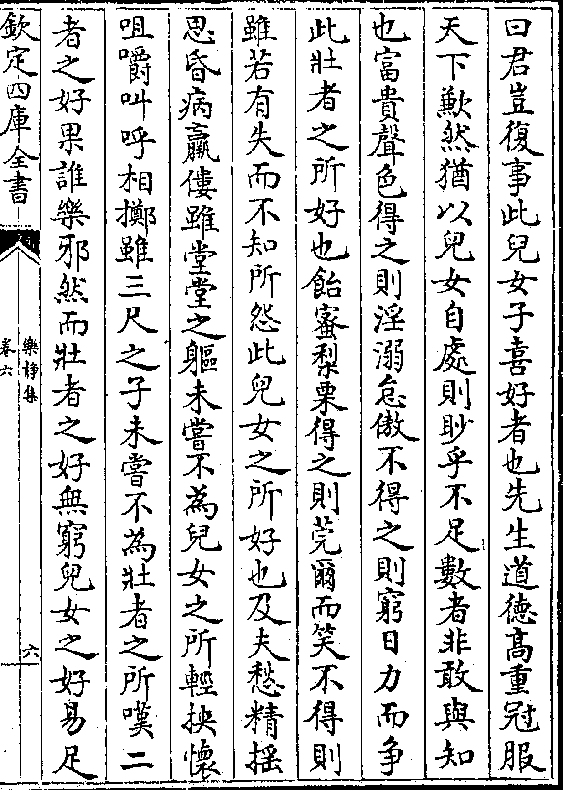 曰君豈復事此兒女子喜好者也先生道德髙重冠服
天下歉然猶以兒女自處則眇乎不足數者非敢與知
也富貴聲色得之則淫溺怠傲不得之則窮日力而争
此壯者之所好也飴蜜梨栗得之則莞爾而笑不得則
雖若有失而不知所怨此兒女之所好也及夫愁精揺
思昏病羸僂雖堂堂之軀未嘗不為兒女之所輕抉懐
咀嚼叫呼相擲雖三尺之子未嘗不為壯者之所嘆二
者之好果誰樂邪然而壯者之好無窮兒女之好易足
欽定四庫全書
樂靜集
卷六
六